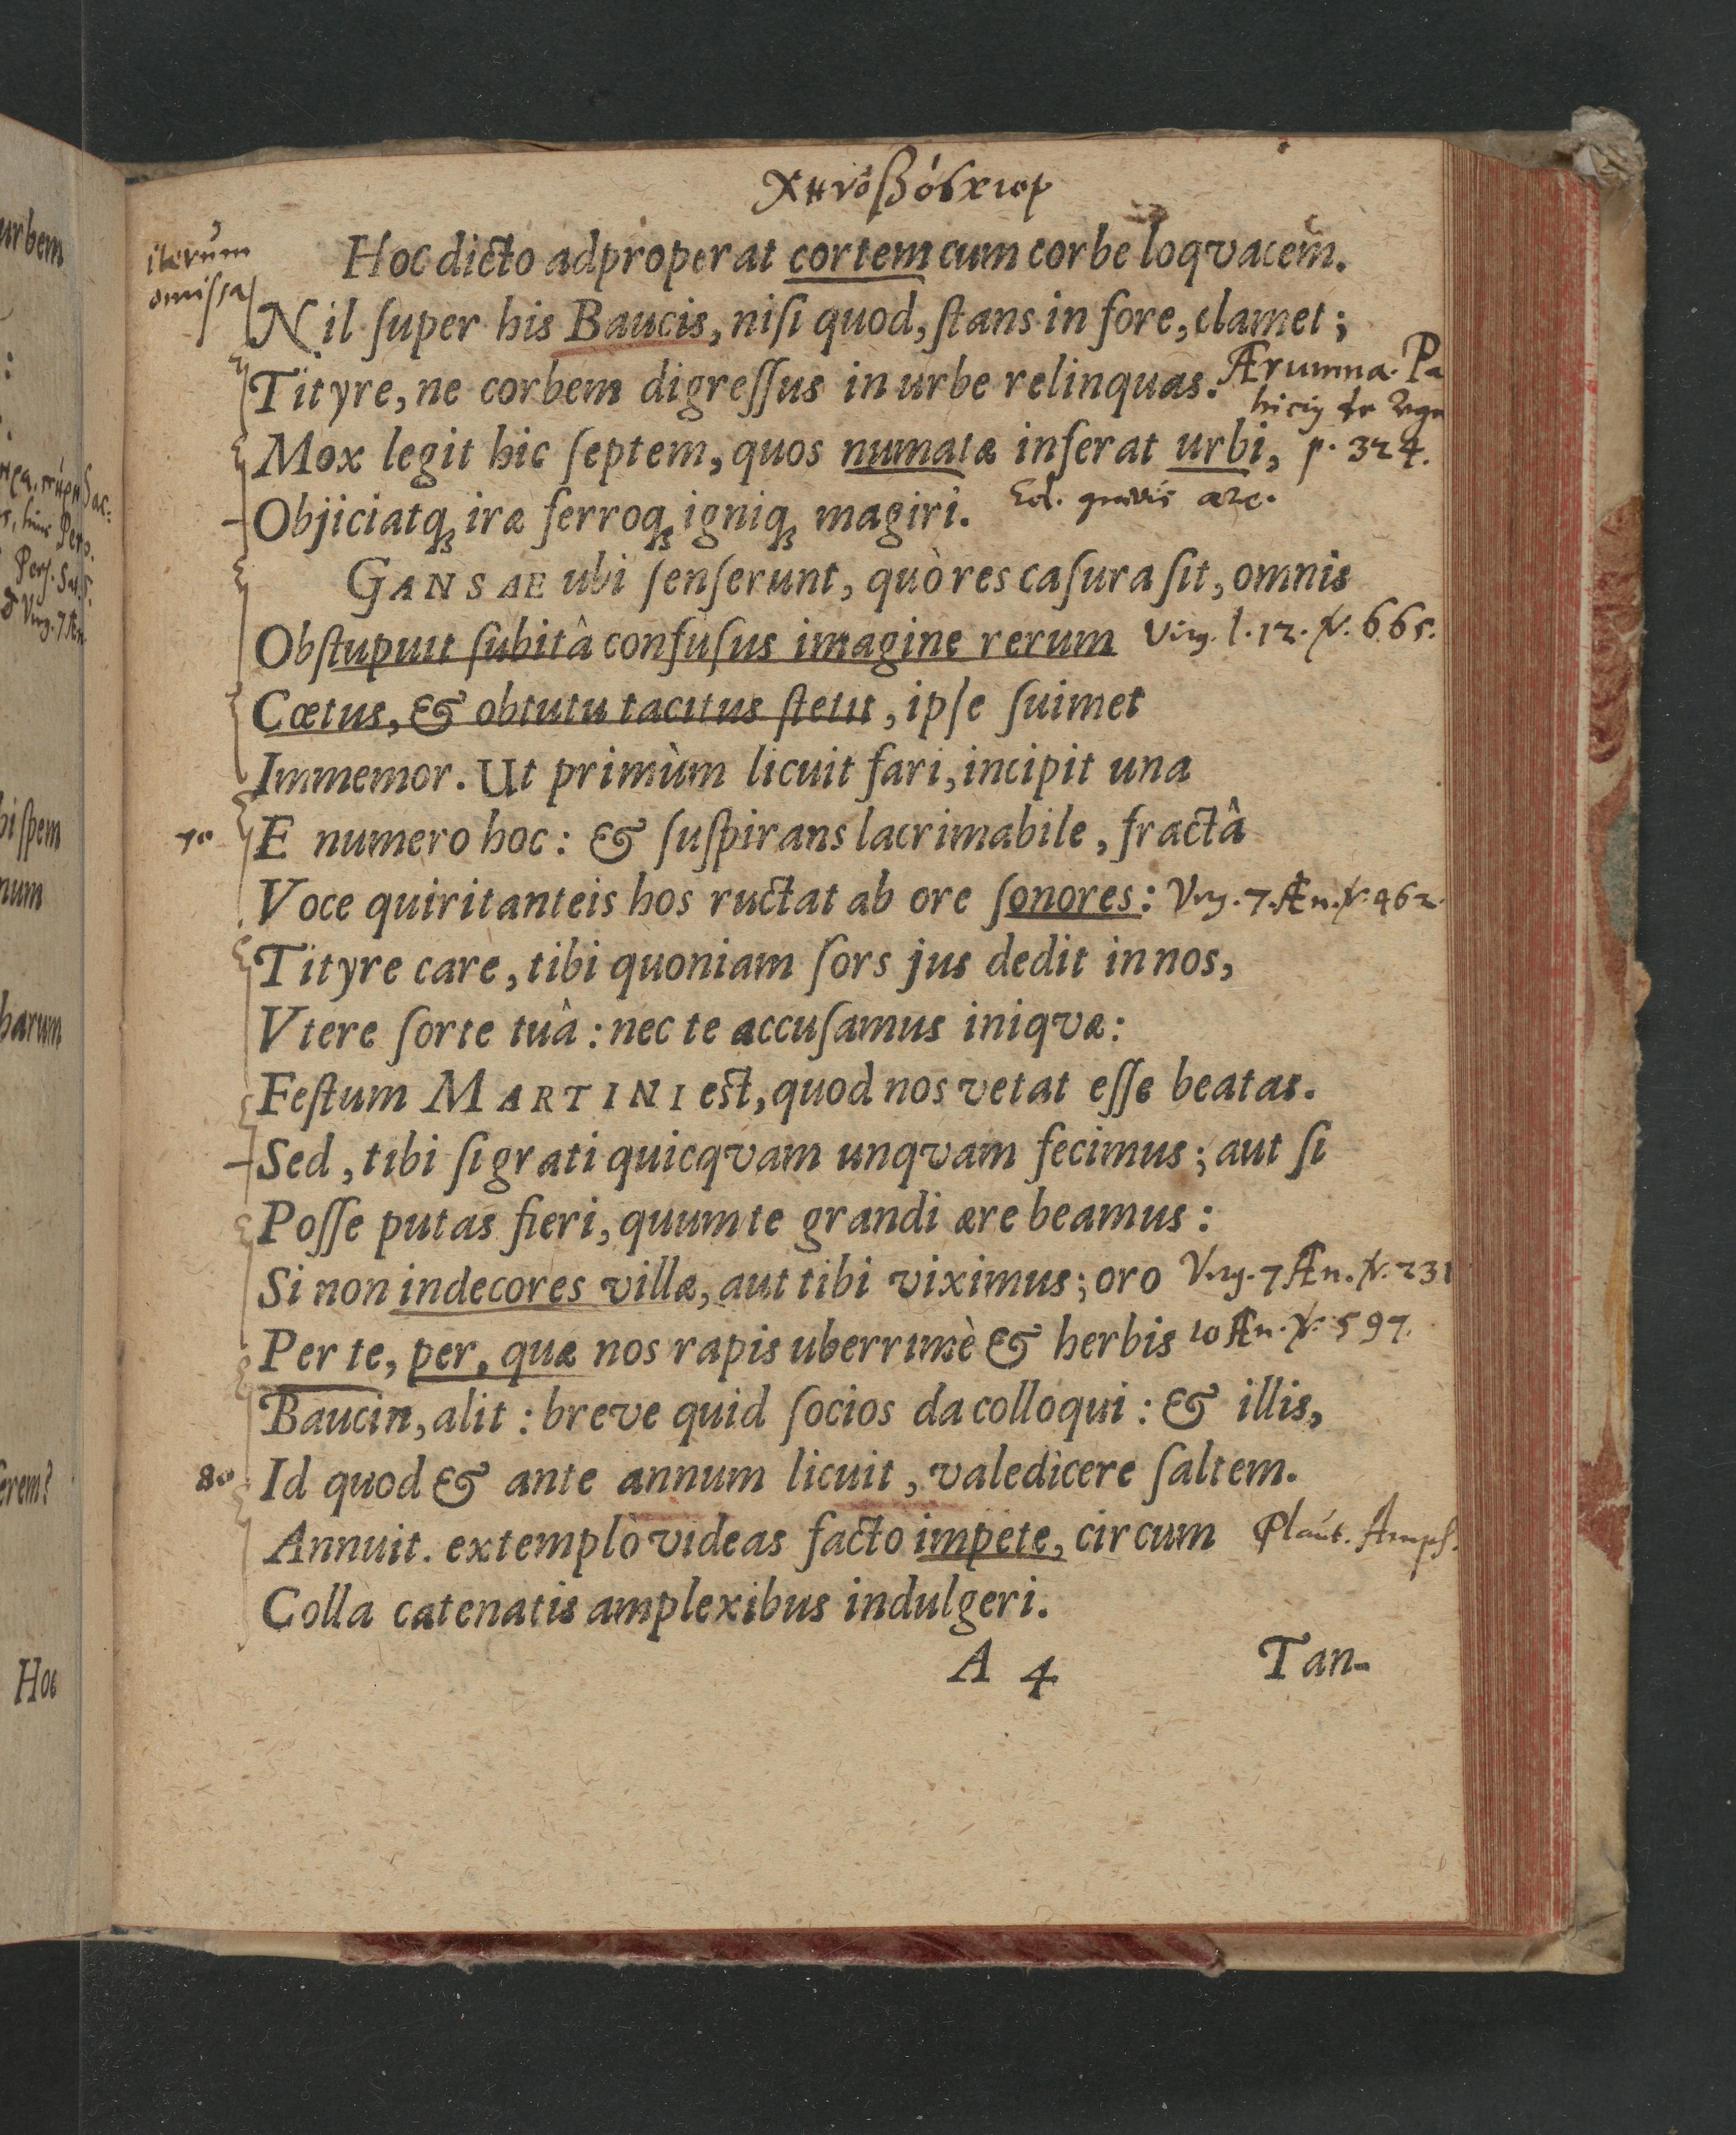 χηνοβόσκιον
iterum
omissa
Hoc dicto adproperat cortem cum corbe loqvacem.
Nil ſuper his Baucis, niſi quod, ſtans in fore, clamet;
Tityre, ne corbem digreſſus in urbe relinquas. Ærumna. Pa
Mox legit hic ſeptem, quos numatæ inſerat urbi, p. 324.
Objiciatq́ iræ ferroq́ igniq́ magiri.
GANSAE ubi ſenſerunt, quò res caſura ſit, omnis
Obſtupuit ſubitâ confuſus imagine rerum Virg. l. 12. ℣. 665.
Cœtus, & obtutu tacitus ſtetit, ipſe ſuimet
Immemor. Ut primùm licuit fari, incipit una
70 E numero hoc: & ſuſpirans lacrimabile, fractâ
Voce quiritanteis hos ructat ab ore ſonores: Virg. 7. Æn. ℣. 462.
Tityre care, tibi quoniam ſors jus dedit in nos,
Vtere ſorte tuâ: nec te accuſamus iniqvæ:
Feſtum MARTINI eſt, quod nos vetat eſſe beatas.
Sed, tibi ſi grati quicqvam unqvam fecimus; aut ſi
Poſſe putas fieri, quum te grandi ære beamus:
Si non indecores villæ, aut tibi viximus; oro Virg. 7 Æn. ℣. 231
Per te, per, quæ nos rapis uberrimè & herbis 10 Æn. ℣. 597.
Baucin, alit: breve quid ſocios da colloqui: & illis,
80 Id quod & ante annum licuit, valedicere ſaltem.
Annuit. extemplò videas facto impete, circum Plaut. Amph.
Colla catenatis amplexibus indulgeri.
A 4 Tan-
urbem
bi ſpem
num
barum
ſerem?
Hoc